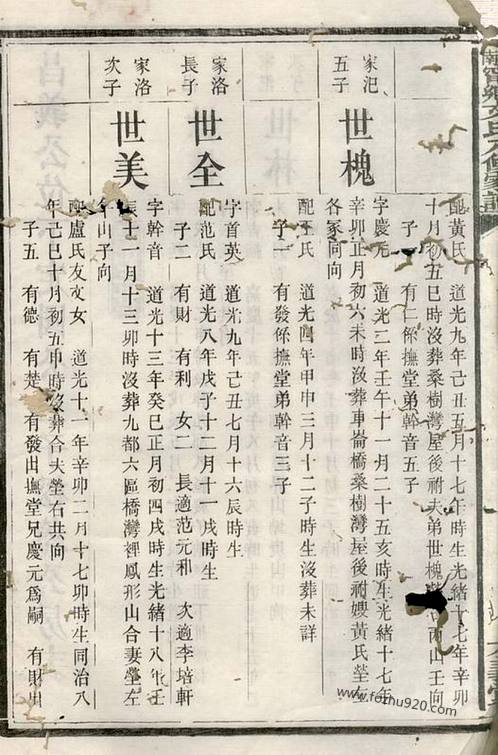 配黃氏 道光九年己丑五月十七午時生光緒十七年辛卯
十月初五巳時沒葬桑樹灣屋後祔夫弟世槐 酉山壬向
子一 有仁係撫堂弟幹音五子
家汜五子
世槐
字慶元 道光二年壬午十一月二十五亥時生光緒十七年
辛卯正月初六未時沒葬車崙橋桑樹灣屋後祔嫂黃氏塋左
各冢同向
配王氏 道光四年甲申三月十二子時生沒葬未詳
子一 有發係撫堂弟幹音三子
家洛長子
世全
字首英 道光九年己丑七月十六辰時生
配范氏 道光八年戊子十二月十一戌時生
子二 有財 有利 女二 長適范元和 次適李培軒
家洛次子
世美
字幹音 道光十三年癸巳正月初四戌時生光緒十八年壬
辰十二月十三卯時沒葬九都六區橋灣裡鳳形山合妻塋左
年山子向
配盧氏友文女 道光十一年辛卯二月十七卯時生同治八
年己巳十月初五申時沒葬合夫塋右共向
子五 有德 有楚 有發出撫堂兄慶元爲嗣 有財出
www.fozhu920.com